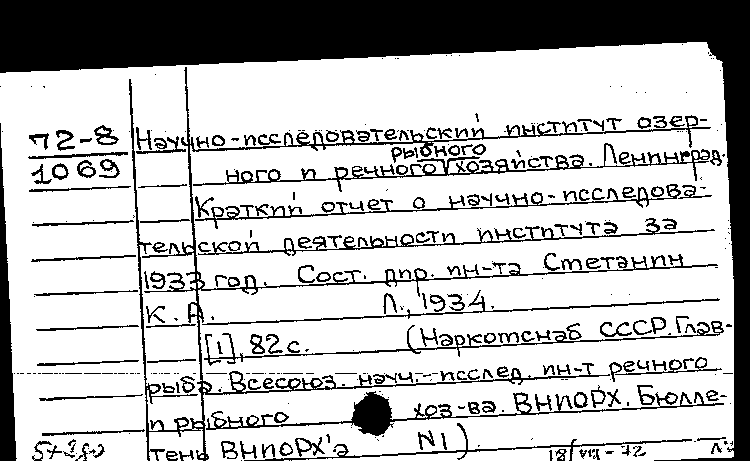 72-8 Научно-исследовательский институт озер-
1069 ного и речного рыбного хозяйства. Ленинград.
Краткий отчет о научно-исследова-
тельской деятельности института за
1933 год. Сост. дир. ин-та
К. А. Л., 1934.
[1], 82с. (Наркомснаб СССР. Глав-
рыба. Всесоюз. науч.-исслед. ин-т речного
и рыбного хоз-ва. ВНИОРХ. Бюлле-
тень ВНИОРХ'а N1)
18/VII-72